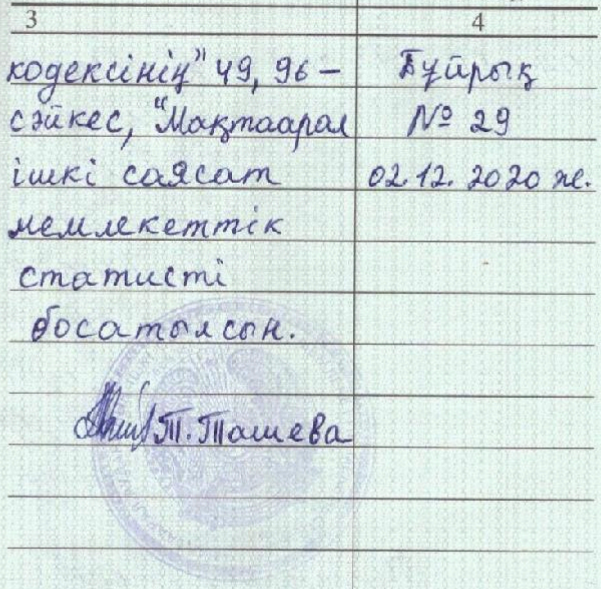 3 4
кодексінің" 49, 96 – Бұйрық
сәйкес, "Мақтаарал № 29
ішкі саясат 02.12.2020 ж.
мемлекеттік
статисті
босатылсын.
Т. Ташева